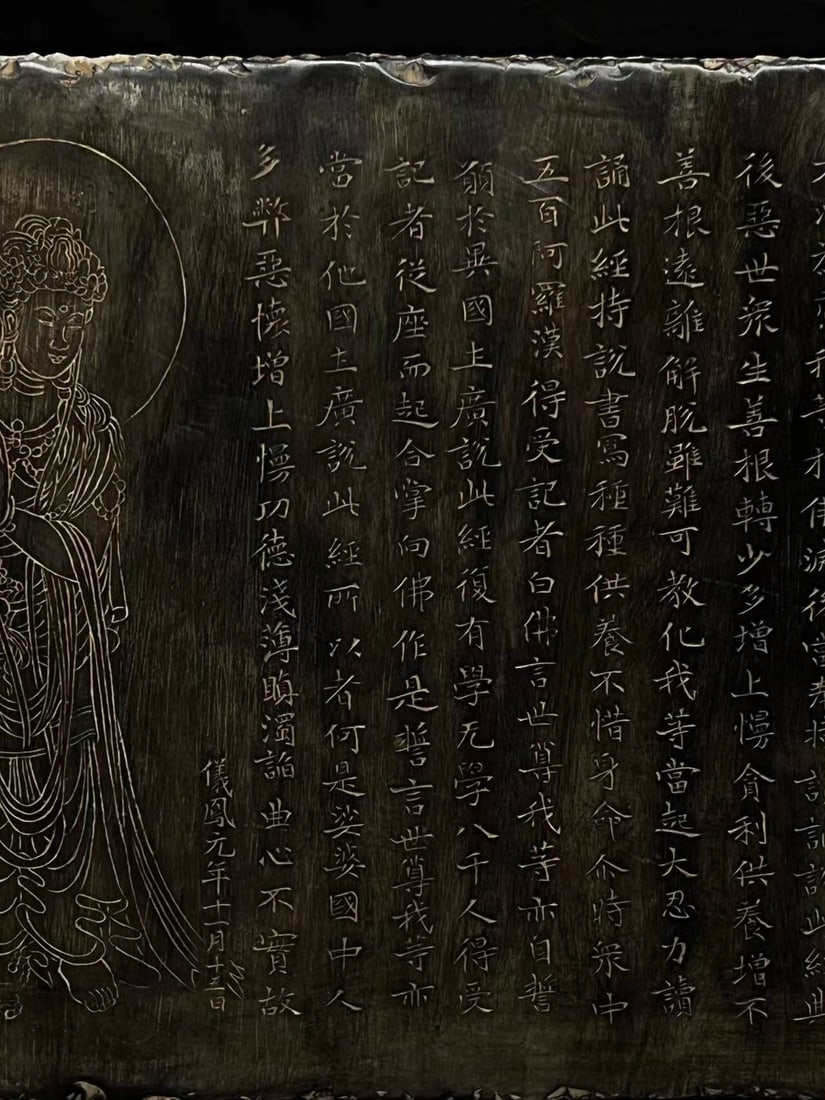 我等於佛滅後當奉持讀誦說此經典
後惡世衆生善根轉少多增上慢貪利供養增不
善根遠離解脫雖難可教化我等當起大忍力讀
誦此經持說書寫種種供養不惜身命尒時衆中
五百阿羅漢得受記者白佛言世尊我等亦自誓
願於異國土廣說此經復有學无學八千人得受
記者從座而起合掌向佛作是誓言世尊我等亦
當於他國土廣說此經所以者何是娑婆國中人
多弊惡懷增上慢功德淺薄瞋濁諂曲心不實故
儀鳳元年十一月十五日